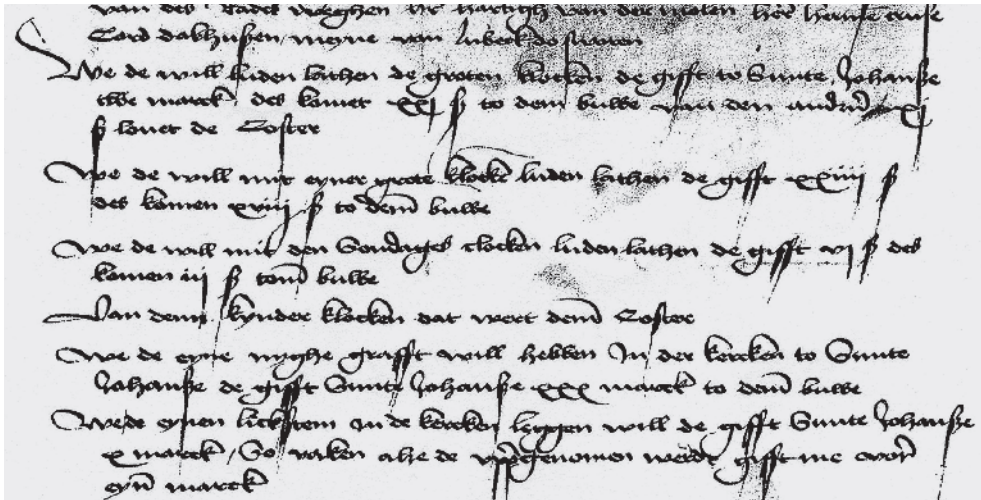 van des Rades weghen hr hartich van der molen her hermen
Cord dakhusen meyne van lubeck do
We de will luden lathen de groten klocken de gifft to Sunte Johanße
twe marck des komet xxj ß to dem buwe van den andern xj
ß louet de Coster
We de will mit eyner grote klocke luden lathen de gifft xxiiii ß
des komen xviij ß to dem buwe
We de will mit den Sondages clocken luden lathen de gifft vj ß des
komen iij ß tom buwe
Van denn kynder klocken dat wert dem Coster
We de eyne nyghe grafft will hebben In der kercken to Sunte
Johanße de gifft Sunte Johanße xxx marck to dem buwe
We de eynen lickstein In de kercken leggen will de gifft Sunte Johanße
x marck / So vaken alse de upgenomen werdt gifft me vor
eyn marck